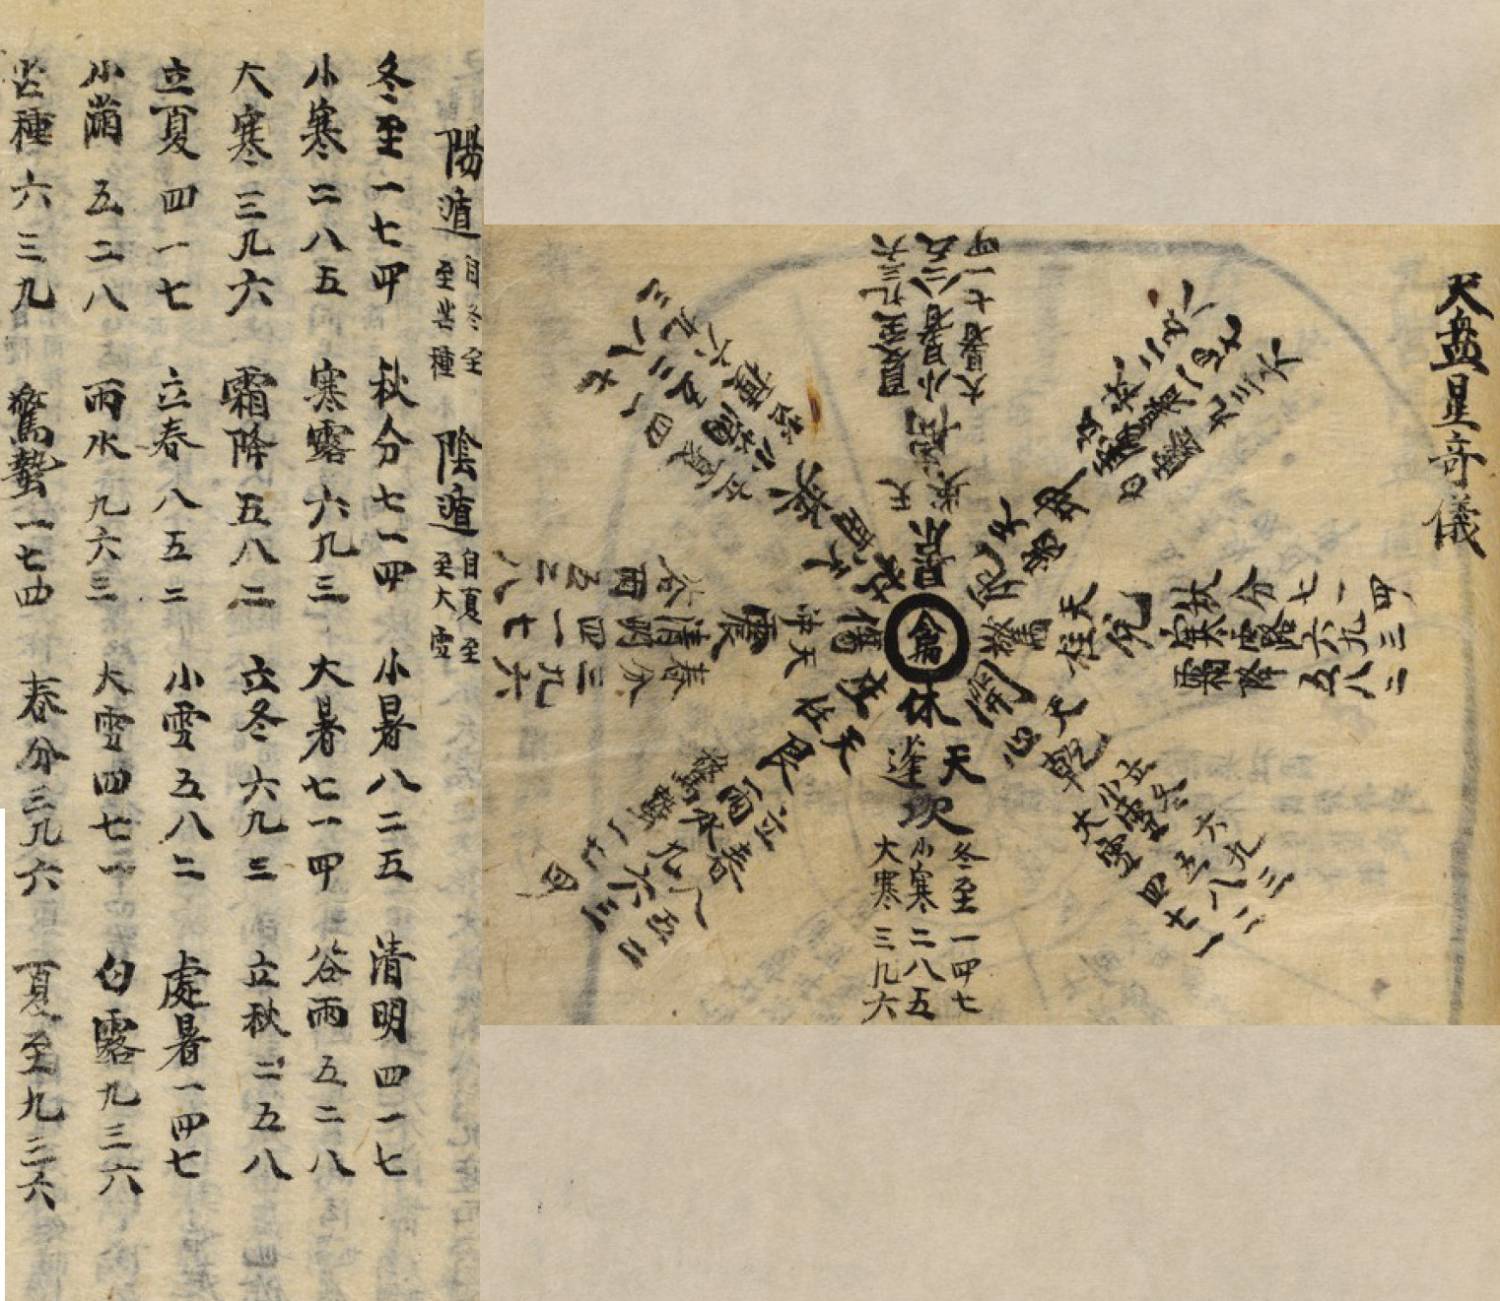 天盘星奇儀
夏至九三六
小暑八二五
大暑七一四
景
死
天
坤
白露九三六
驚
天柱
兊
秋分七一四
寒露六九三
霜降五八二
開
天心
乾
立冬六九三
小雪五八二
大雪四七一
休
天蓬
坎
冬至一四七
小寒二八五
大寒三九六
生
天任
艮
立春八五二
雨水九六三
驚蟄一七四
傷
天冲
震
春分三九六
清明四一七
谷雨五二八
禽
陽遁自冬至至芒種 陰遁自夏至至大雪
冬至一七四 秋分七一四 小暑八二五 清明四一七
小寒二八五 寒露六九三 大暑七一四 谷雨五二八
大寒三九六 霜降五八二 立冬六九三 立秋二五八
立夏四一七 立春八五二 小雪五八二 處暑一四七
小滿五二八 雨水九六三 大雪四七一 白露九三六
芒種六三九 驚蟄一七四 春分三九六 夏至九三六